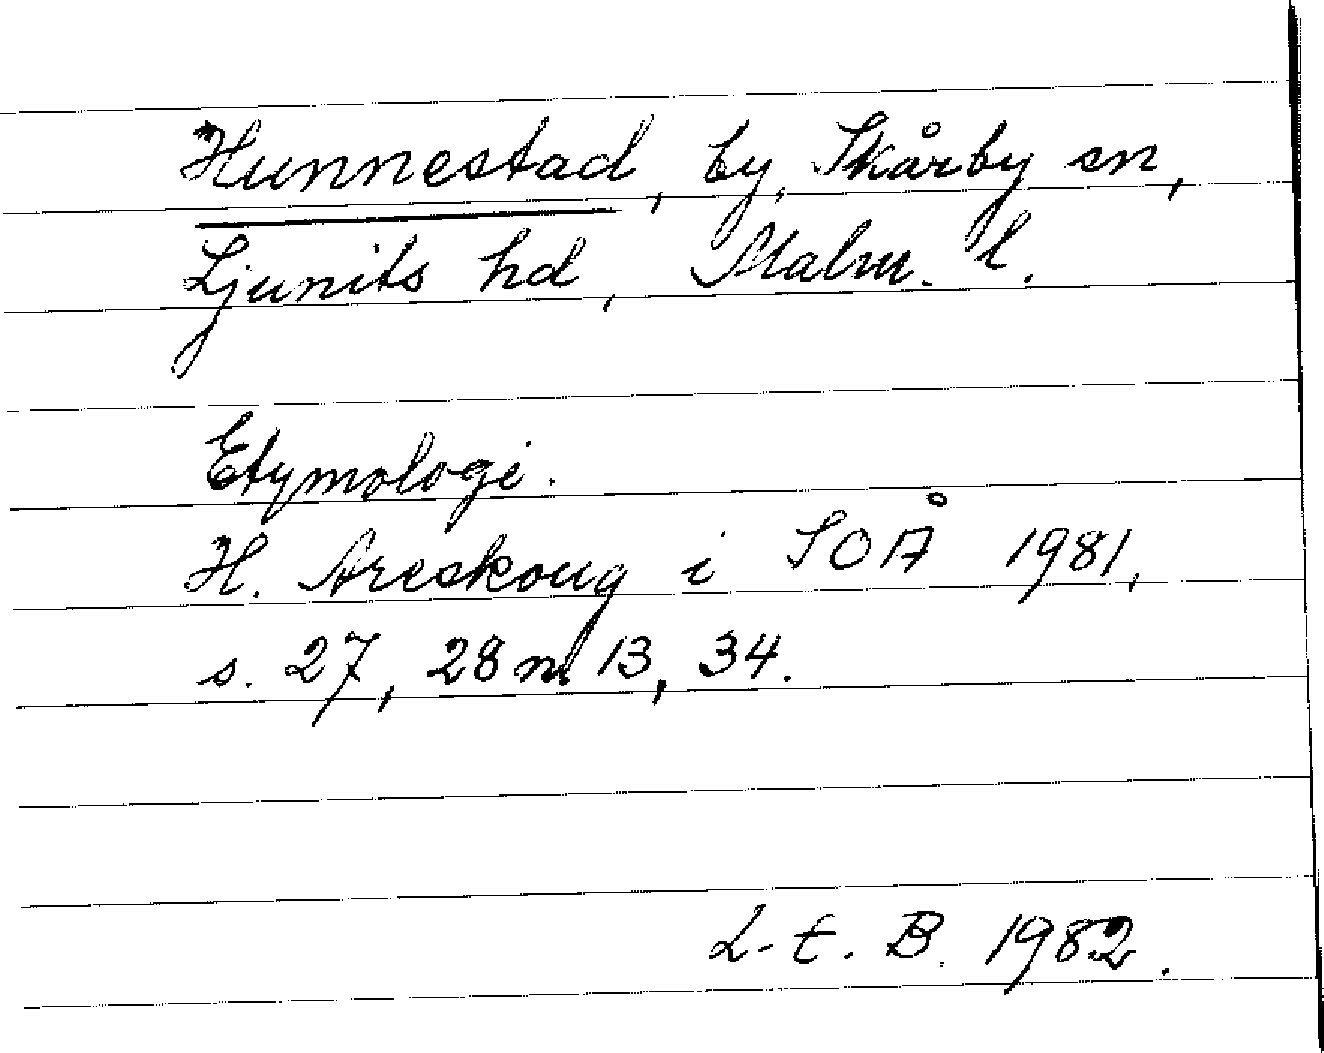 Hunnestad, by, Skårby sn,
Ljunits hd, Malm. l.
Etymologi.
H. Areskoug i SOÅ 1981,
s. 27, 28 n 13, 34.
L-E. B. 1982.